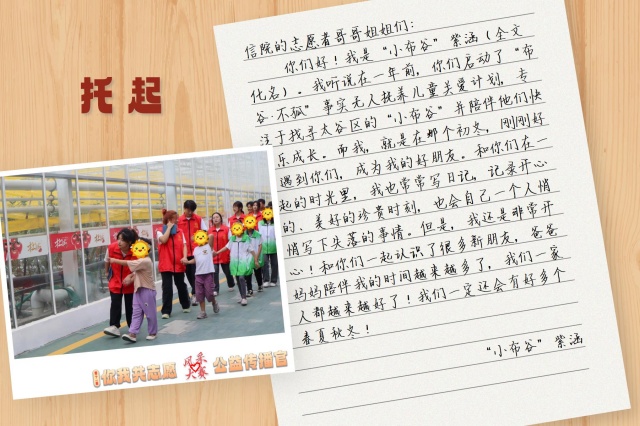 托起
信院的志愿者哥哥姐姐们：
你们好！我是“小布谷”紫涵（全文
化名）。我听说在一年前，你们启动了“布
谷·不孤”事实无人抚养儿童关爱计划，专
注于找寻太谷区的“小布谷”并陪伴他们快
乐成长。而我，就是在那个初冬，刚刚好
遇到你们，成为我的好朋友。和你们在一
起的时光里，我也常常写日记，记录开心
的、美好的珍贵时刻，也会自己一个人悄
悄写下失落的事情。但是，我还是非常开
心！和你们一起认识了很多新朋友，爸爸
妈妈陪伴我的时间越来越多了，我们一家
人都越来越好了！我们一定还会有好多个
春夏秋冬！
“小布谷” 紫涵
你我共志愿 风采大赛 公益传播官